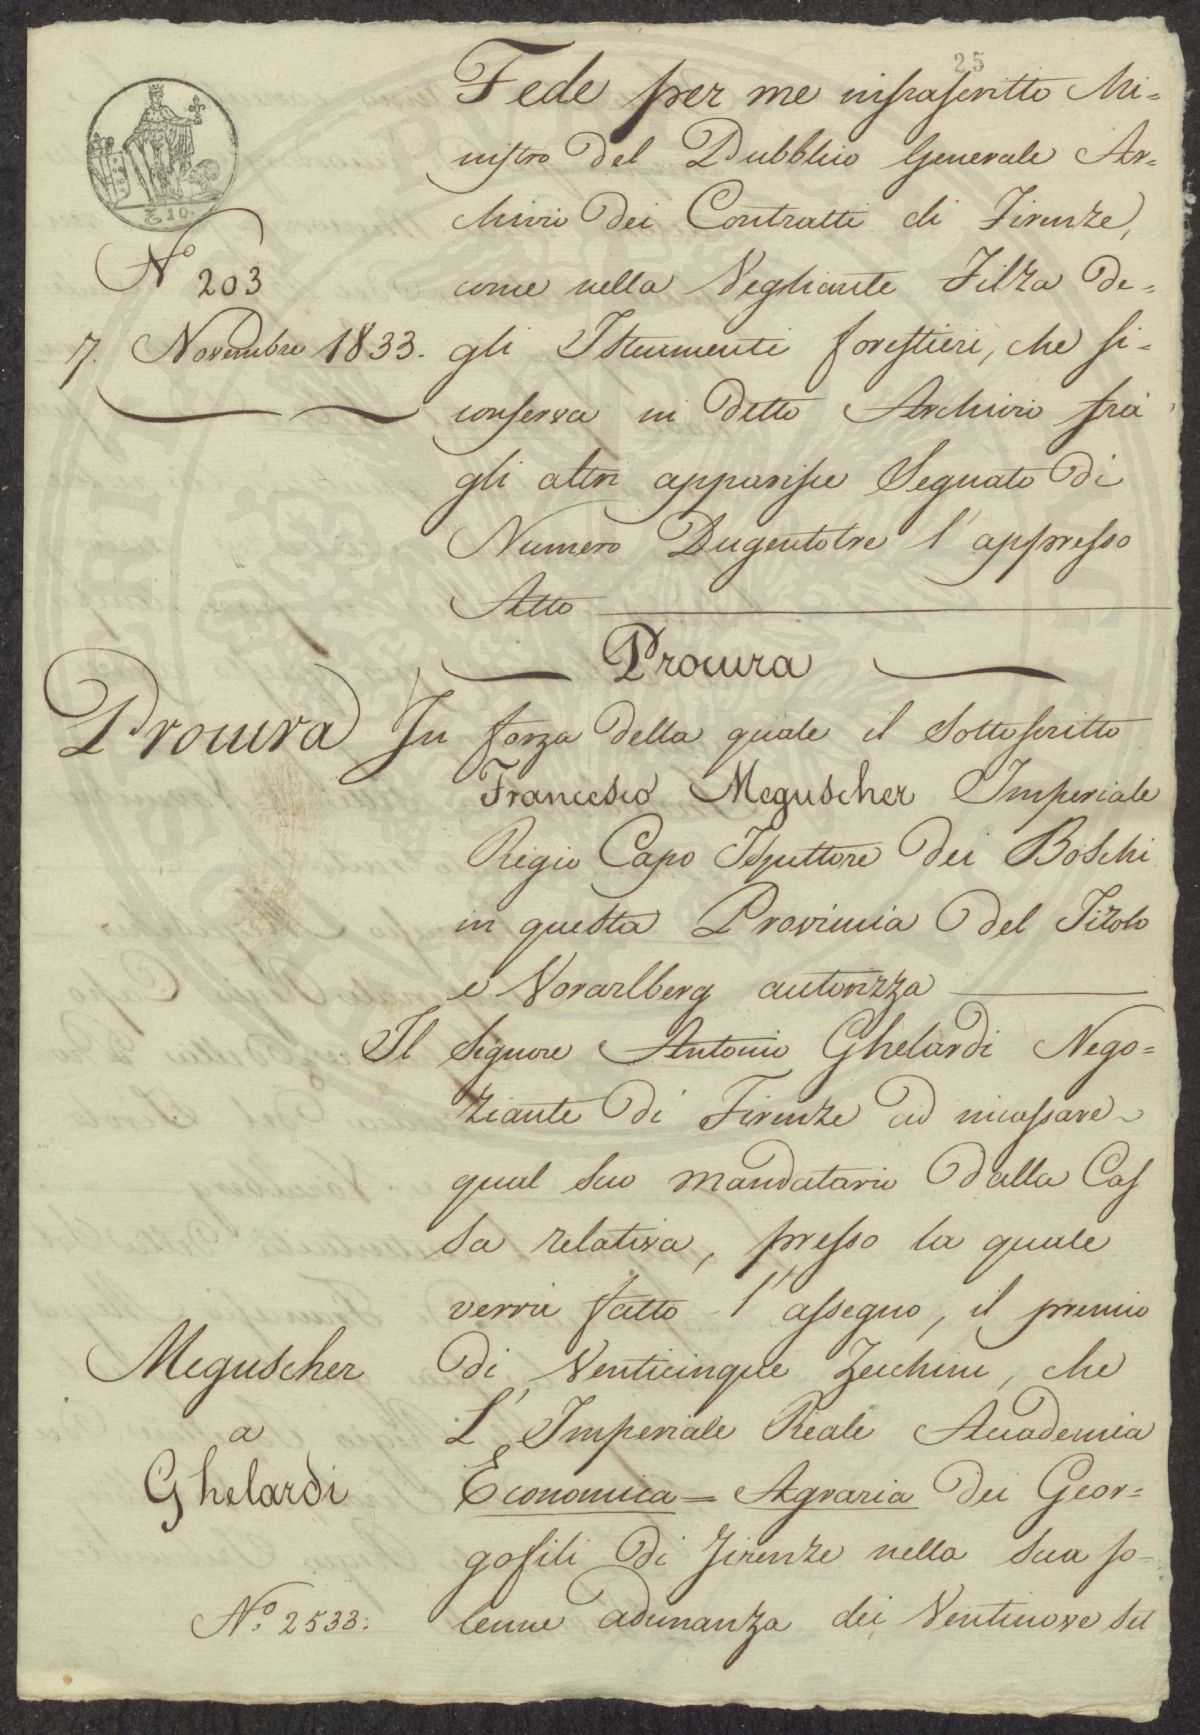 25
Fede per me infrascritto Mi=
nistro del Pubblico Generale Ar=
chivio dei Contratti di Firenze,
come nella Vegliante Filza de=
gli Istrumenti forestieri, che si=
conserva in detto Archivio fra
gli altri apparisce Segnato di
Numero Dugentotre l'appresso
Atto
₤ 10.
N.º 203
7. Novembre 1833.
Procura
Procura
In forza della quale il Sottoscritto
Francesco Meguscher Imperiale
Regio Capo Ispettore dei Boschi
in questa Provincia del Tirolo
e Vorarlberg autorizza
Il Signore Antonio Ghelardi Nego=
ziante di Firenze ad incassare
qual suo mandatario dalla Cas
sa relativa, presso la quale
verrà fatto l'assegno, il premio
di Venticinque Zecchini, che
L'Imperiale Reale Accademia
Economica = Agraria dei Geor=
gofili di Firenze nella sua so=
lenne adunanza dei Ventinove Set
Meguscher
a
Ghelardi
N.º 2533.